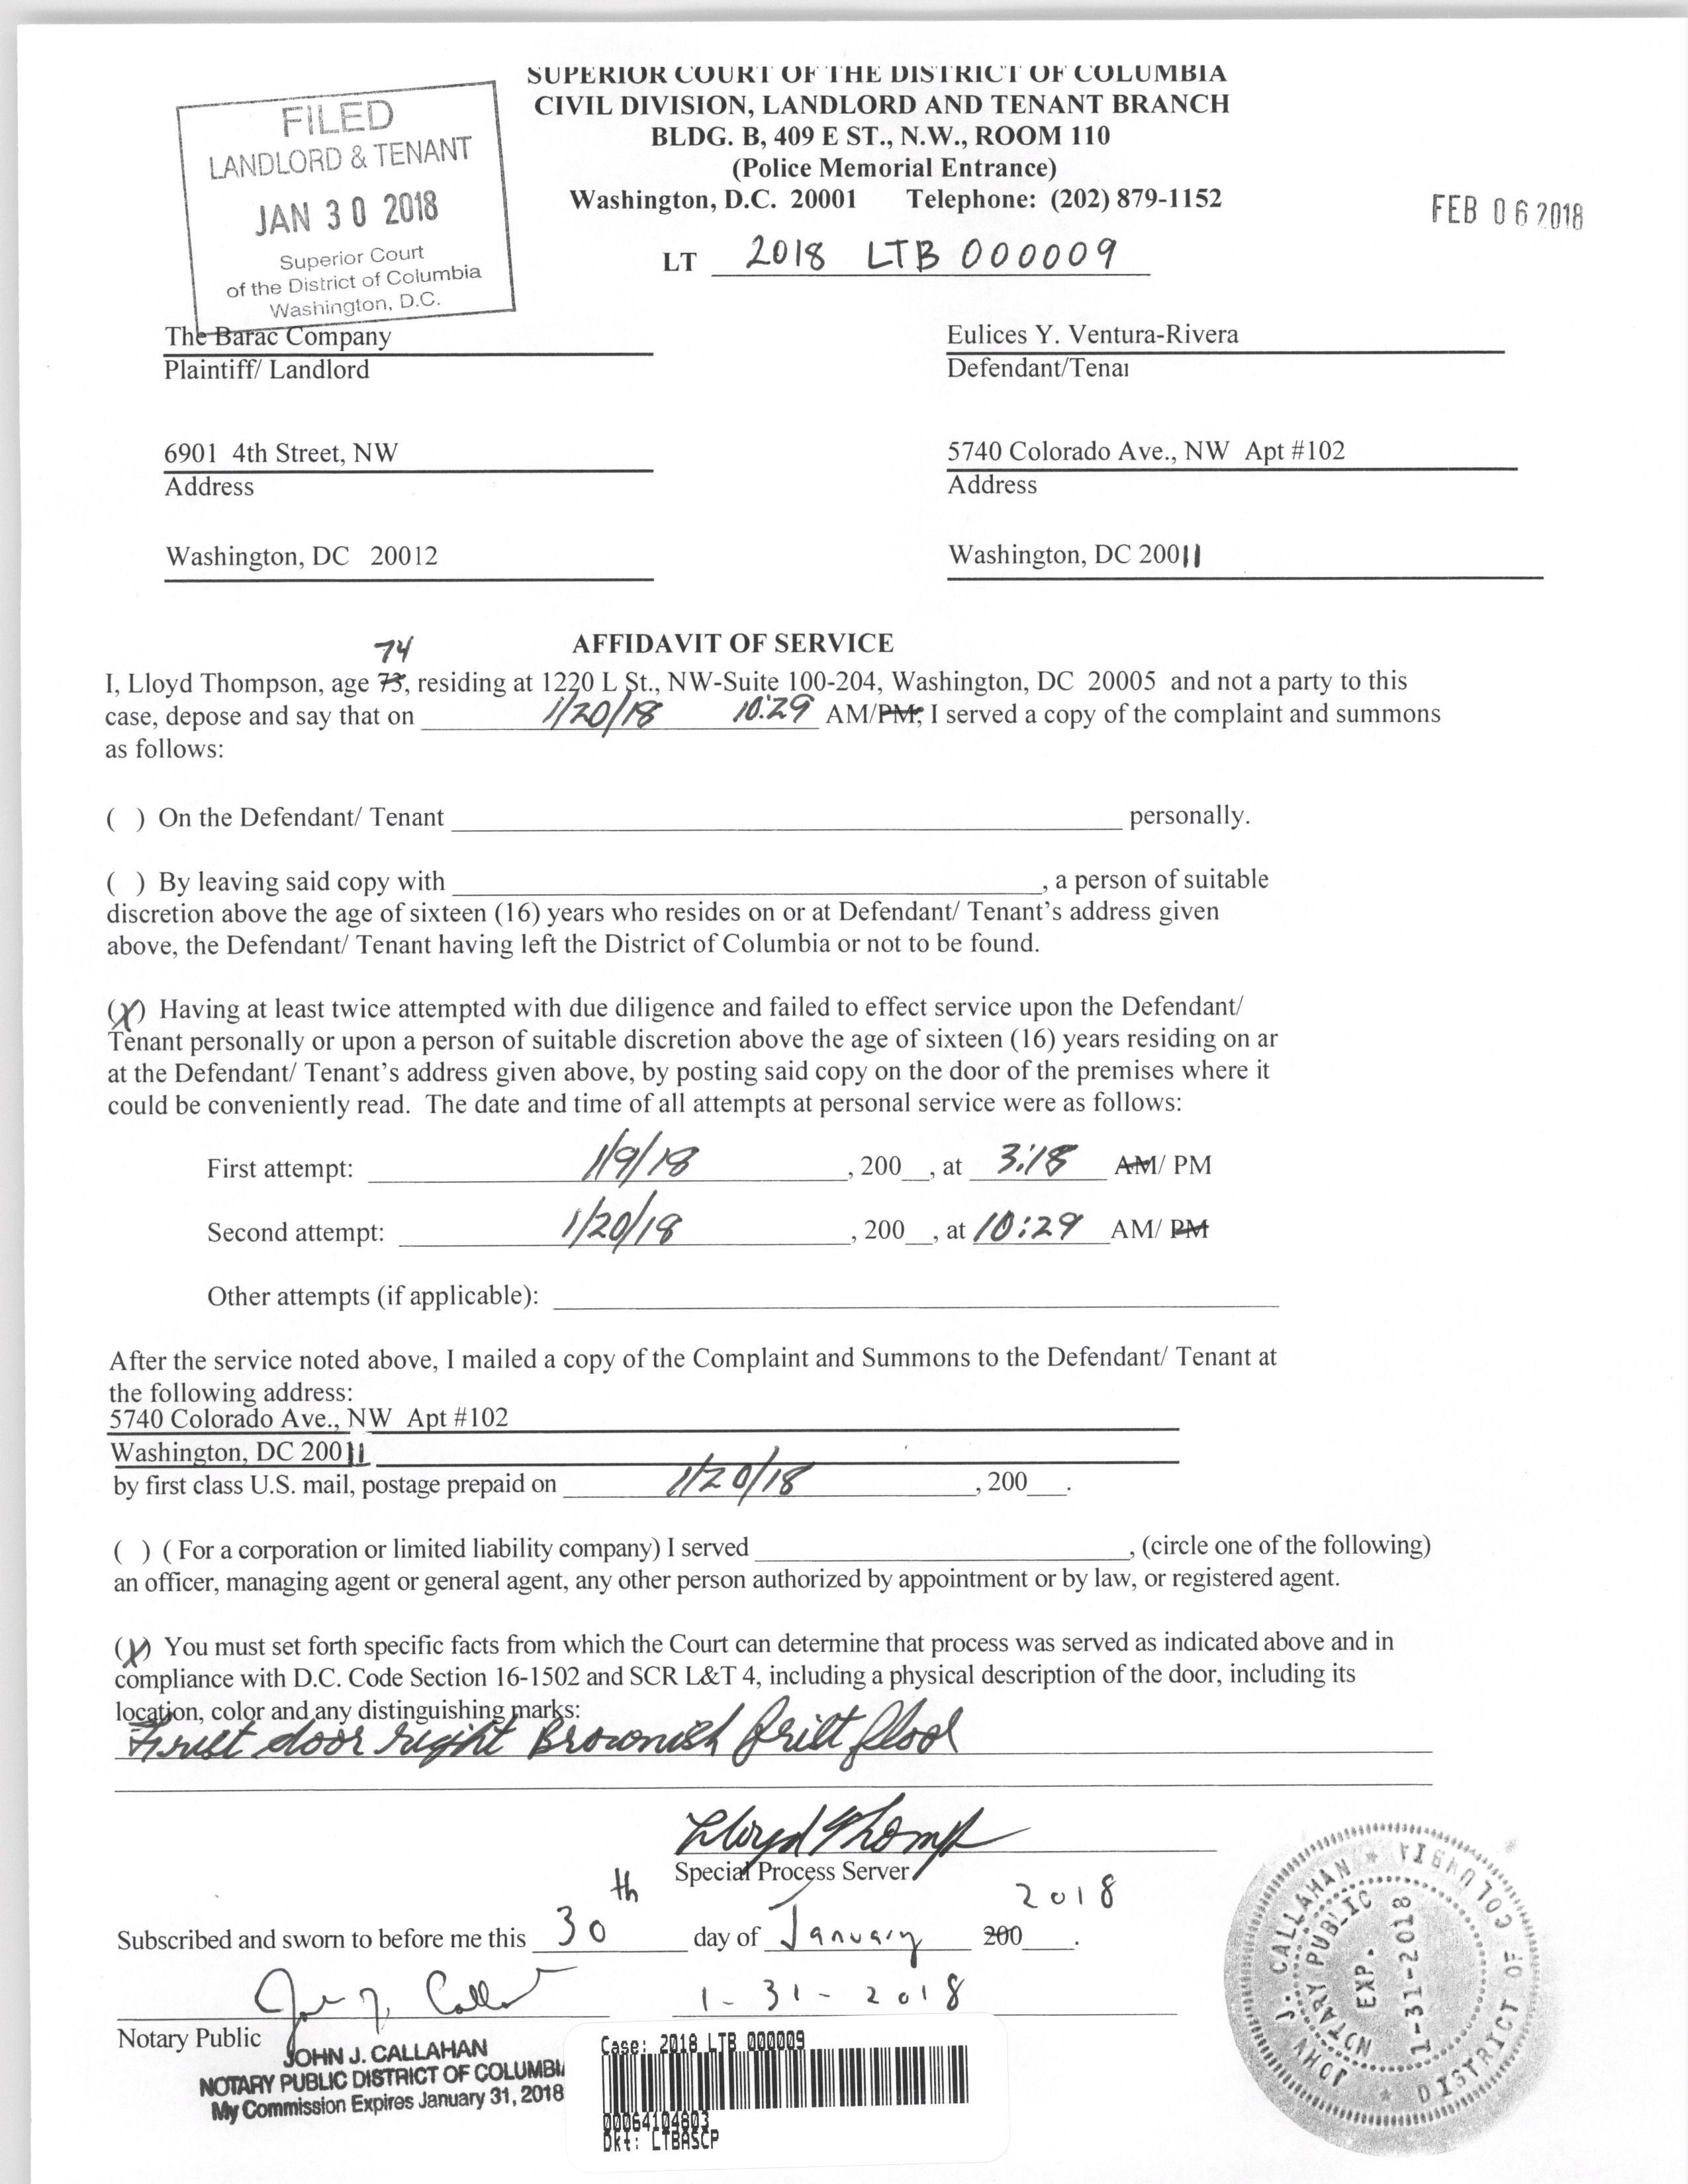 SUPERIOR COURT OF THE DISTRICT OF COLUMBIA
CIVIL DIVISION, LANDLORD AND TENANT BRANCH
BLDG. B, 409 E ST., N.W., ROOM 110
(Police Memorial Entrance)
Washington, D.C. 20001 Telephone: (202) 879-1152
FILED
LANDLORD & TENANT
JAN 30 2018
Superior Court
of the District of Columbia
Washington, D.C.
FEB 06 2018
LT 2018 LTB 000009
The Barac Company
Plaintiff/ Landlord
Eulices Y. Ventura-Rivera
Defendant/Tenai
6901 4th Street, NW
Address
5740 Colorado Ave., NW Apt #102
Address
Washington, DC 20012
Washington, DC 20011
AFFIDAVIT OF SERVICE
74
I, Lloyd Thompson, age 73, residing at 1220 L St., NW-Suite 100-204, Washington, DC 20005 and not a party to this
case, depose and say that on 1/20/18 10:29 AM/PM, I served a copy of the complaint and summons
as follows:
( ) On the Defendant/ Tenant personally.
( ) By leaving said copy with , a person of suitable
discretion above the age of sixteen (16) years who resides on or at Defendant/ Tenant's address given
above, the Defendant/ Tenant having left the District of Columbia or not to be found.
(X) Having at least twice attempted with due diligence and failed to effect service upon the Defendant/
Tenant personally or upon a person of suitable discretion above the age of sixteen (16) years residing on ar
at the Defendant/ Tenant's address given above, by posting said copy on the door of the premises where it
could be conveniently read. The date and time of all attempts at personal service were as follows:
First attempt: 1/9/18 , 200__, at 3:18 AM/ PM
Second attempt: 1/20/18 , 200__, at 10:29 AM/ PM
Other attempts (if applicable):
After the service noted above, I mailed a copy of the Complaint and Summons to the Defendant/ Tenant at
the following address:
5740 Colorado Ave., NW Apt #102
Washington, DC 20011
by first class U.S. mail, postage prepaid on 1/20/18 , 200___.
( ) ( For a corporation or limited liability company) I served , (circle one of the following)
an officer, managing agent or general agent, any other person authorized by appointment or by law, or registered agent.
(X) You must set forth specific facts from which the Court can determine that process was served as indicated above and in
compliance with D.C. Code Section 16-1502 and SCR L&T 4, including a physical description of the door, including its
location, color and any distinguishing marks:
door right Brownish
Lloyd Thomp
Special Process Server
Subscribed and sworn to before me this 30th day of January 200___. 2018
1-31-2018
Notary Public
JOHN J. CALLAHAN
NOTARY PUBLIC DISTRICT OF COLUMBIA
My Commission Expires January 31, 2018
Case: 2018 LTB 000009
00064104803
Dkt: LTBASCP
JOHN J. CALLAHAN
DISTRICT OF COLUMBIA
NOTARY PUBLIC
EXP.
1-31-2018